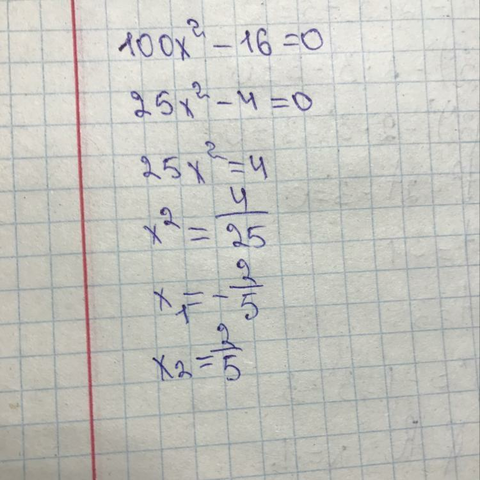 100x² - 16 = 0
25x² - 4 = 0
25x² = 4
x² = 4/25
x₁ = -2/5
x₂ = 2/5